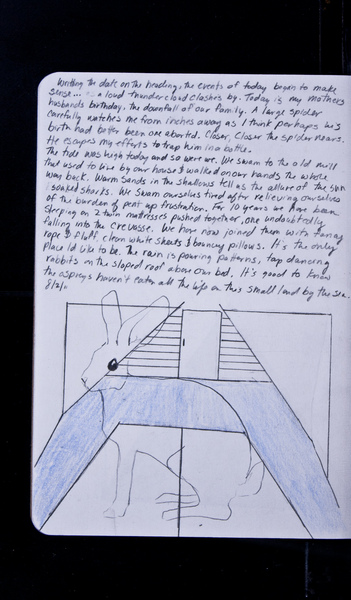 Writing the date on the heading, the events of today began to make
sense... a loud thundercloud clashes by. Today is my mothers
husbands birthday. The downfall of our family. A large spider
carefully watches me from inches away as I think perhaps his
birth had better been one aborted. Closer, Closer the spider nears.
He escapes my efforts to trap him in a bottle.
The tide was high today and so were we. We swam to the old mill
that used to live by our house & walked on our hands the whole
way back. Warm sands in the shallows tell us the allure of the sun
soaked sharks. We swam ourselves tired after relieving ourselves
of the burden of pent up frustration. For 10 years we have been
sleeping on 2 twin mattresses pushed together, one undoubtedly
falling into the crevasse. We have now joined them with fancy
rope & fluff, clean white sheets & bouncy pillows. It's the only
place I'd like to be. The rain is pouring patterns, tap dancing
rabbits on the sloped roof above our bed. It's good to know
the ospreys haven't eaten all the life on this small land by the sea.